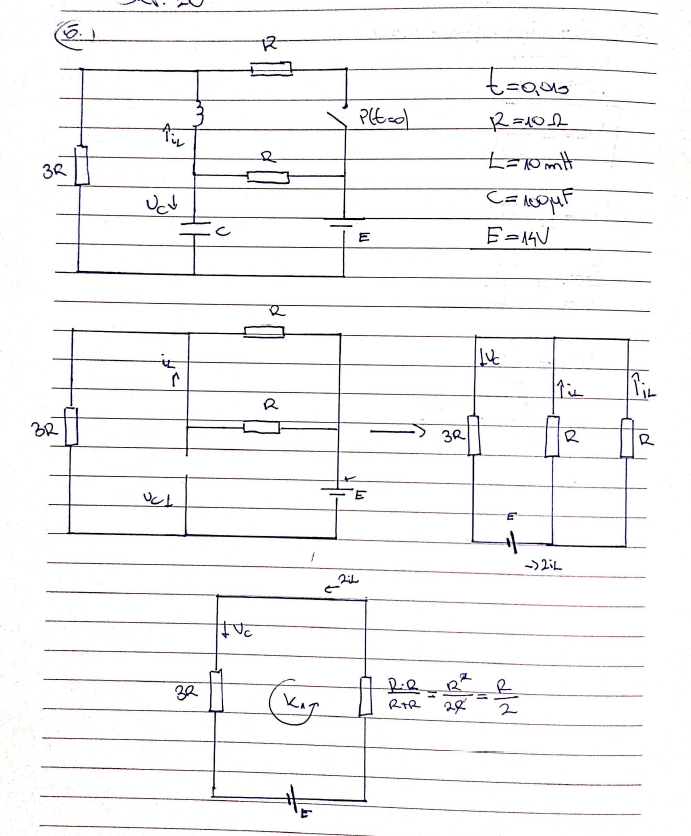 5.)
R
3R
iL
P(t=0)
R
Uc
C
E
R=10Ω
L=10mH
C=100μF
E=14V
R
iL
3R
R
Uc
E
Uc
iL
iL
3R
R
R
E
2iL
2iL
Uc
3R
K1
R·R/R+R = R²/2R = R/2
E